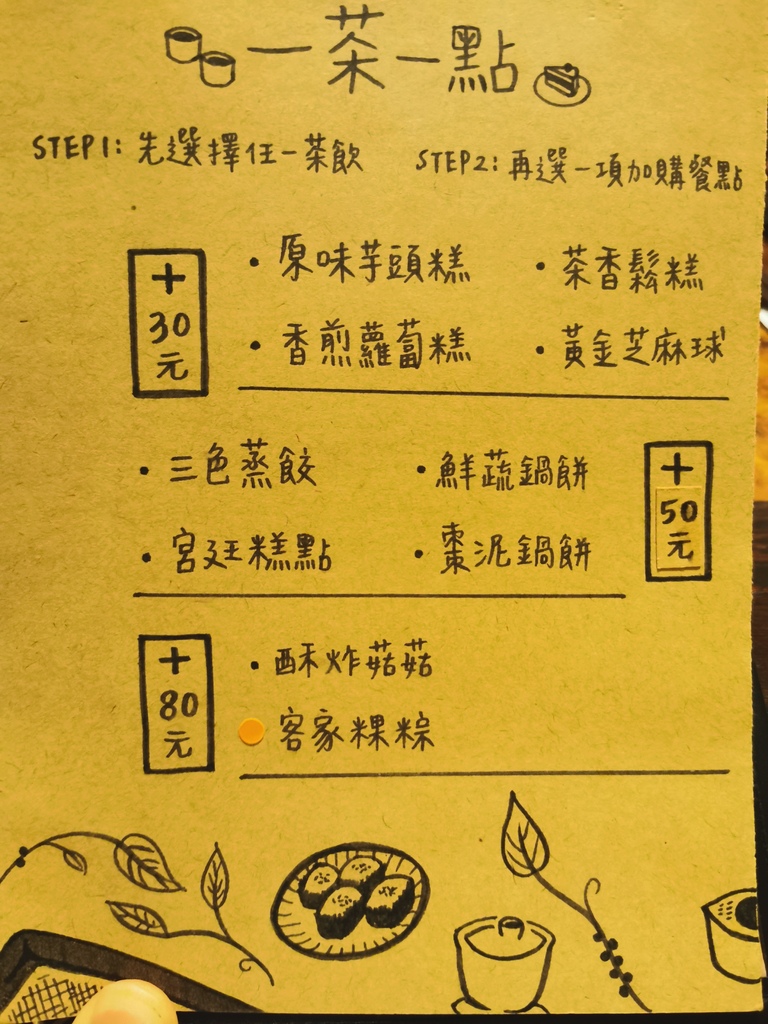 一茶一點
STEP1: 先選擇任一茶飲
STEP2: 再選一項加購餐點
+30元
• 原味芋頭糕
• 茶香鬆糕
• 香煎蘿蔔糕
• 黃金芝麻球
• 三色蒸餃
• 鮮蔬鍋餅
+50元
• 宮廷糕點
• 棗泥鍋餅
+80元
• 酥炸菇菇
客家粿粽